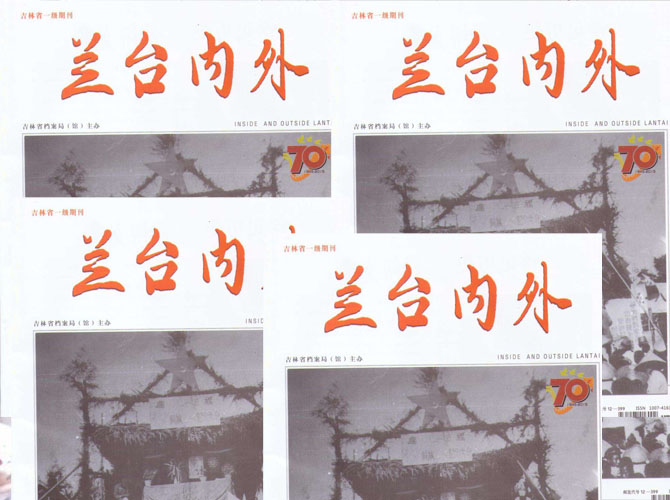 吉林省一级期刊
兰台内外
吉林省档案局（馆）主办
INSIDE AND OUTSIDE LANTAI
70
吉林省一级期刊
兰台内外
吉林省档案局（馆）主办
INSIDE AND OUTSIDE LANTAI
70
吉林省一级期刊
兰台内
吉林省档案局（馆）主办
INSID
吉林省一级期刊
兰台内外
吉林省档案局（馆）主办
INSIDE AND OUTSIDE LANTAI
70
号 12—399
ISSN 1007-416
12—399